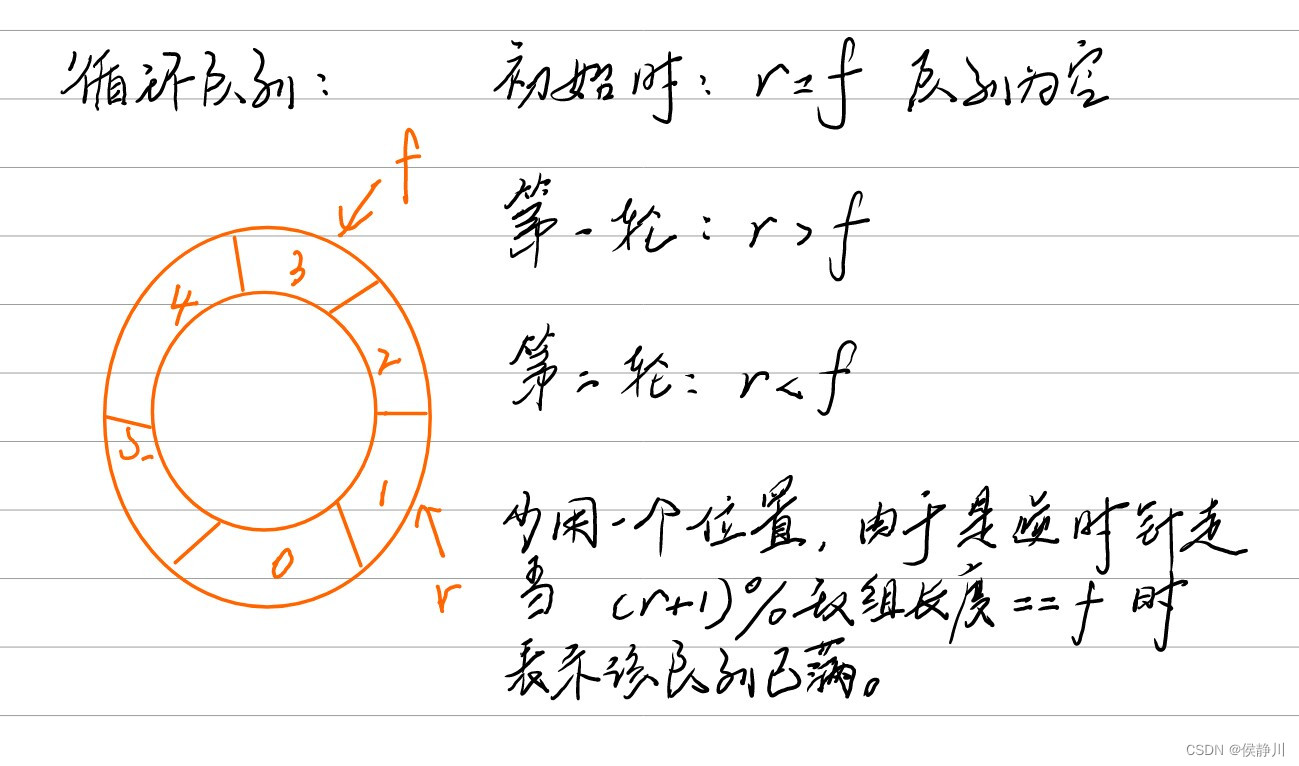 循环队列:
初始时: r=f 队列为空
f
第一轮: r>f
3
4
2
第二轮: r<f
5
1
少用一个位置,由于是逆时针走
0
r
当 (r+1)%数组长度==f 时
表示该队列已满。
CSDN @侯静川